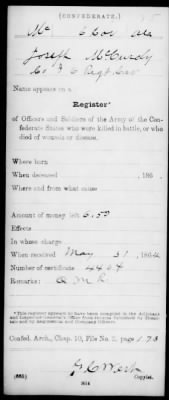 (CONFEDERATE.)
Mc 6 Cav
Joseph McCurdy
Co 6 Regt Cav
Name appears on a
Register*
of Officers and Soldiers of the Army of the Confederate States who were killed in battle, or who died of wounds or disease.
Where born
When deceased , 186 .
Where and from what cause
Amount of money left 6.50
Effects
In whose charge
When received May 31, 186
Number of certificate 4404
Remarks: Q M R
*This register appears to have been compiled in the Adjutant and Inspector General's Office from returns furnished by Hospitals and by Regimental and Company Officers.
Confed. Arch., Chap. 10, File No. 2, page 173
G. C. West
(655) Copyist.